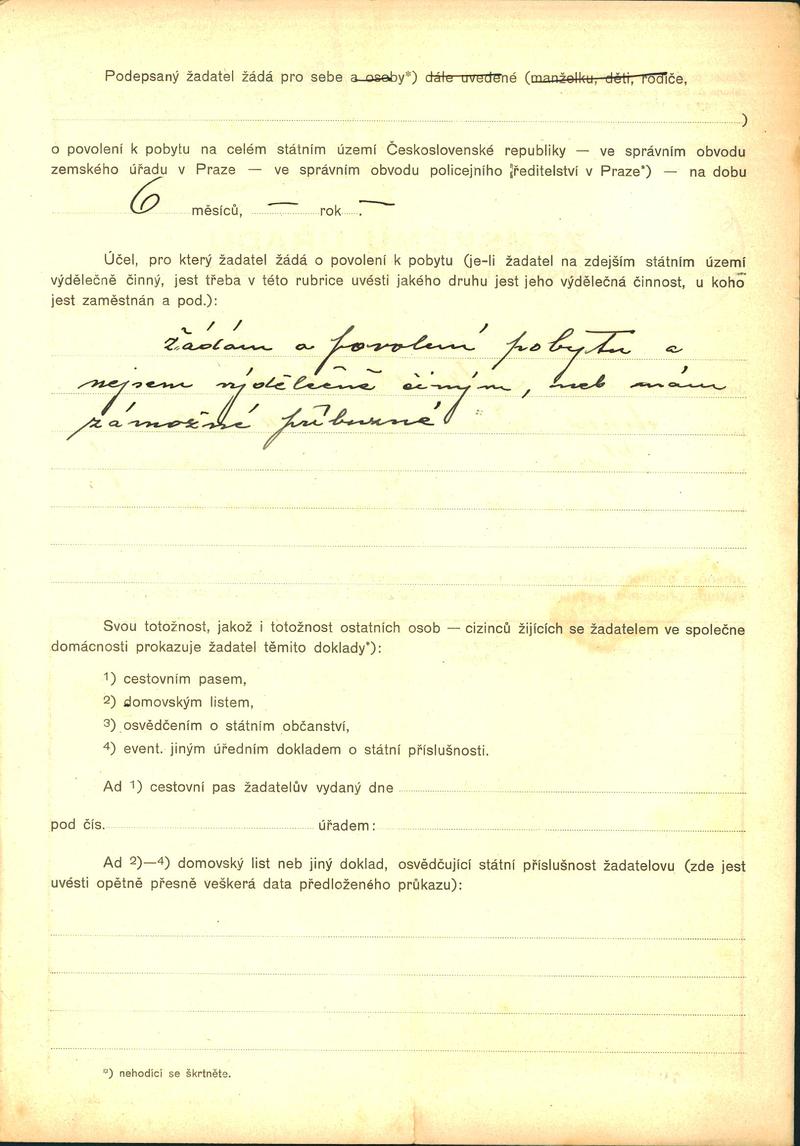 Podepsaný žadatel žádá pro sebe a osoby*) dále uvedené (manželku, děti, rodiče,
)
o povolení k pobytu na celém státním území Československé republiky — ve správním obvodu
zemského úřadu v Praze — ve správním obvodu policejního ředitelství v Praze*) — na dobu
6 měsíců, — rok —
Účel, pro který žadatel žádá o povolení k pobytu (je-li žadatel na zdejším státním území
výdělečně činný, jest třeba v této rubrice uvésti jakého druhu jest jeho výdělečná činnost, u koho
jest zaměstnán a pod.):
žádám o povolení pobytu a
nejsem výdělečně činným, neb mám
zámožné příbuzné
Svou totožnost, jakož i totožnost ostatních osob — cizinců žijících se žadatelem ve společne
domácnosti prokazuje žadatel těmito doklady*):
1) cestovním pasem,
2) domovským listem,
3) osvědčením o státním občanství,
4) event. jiným úředním dokladem o státní příslušnosti.
Ad 1) cestovní pas žadatelův vydaný dne
pod čís. úřadem:
Ad 2)—4) domovský list neb jiný doklad, osvědčující státní příslušnost žadatelovu (zde jest
uvésti opětně přesně veškerá data předloženého průkazu):
*) nehodící se škrtněte.